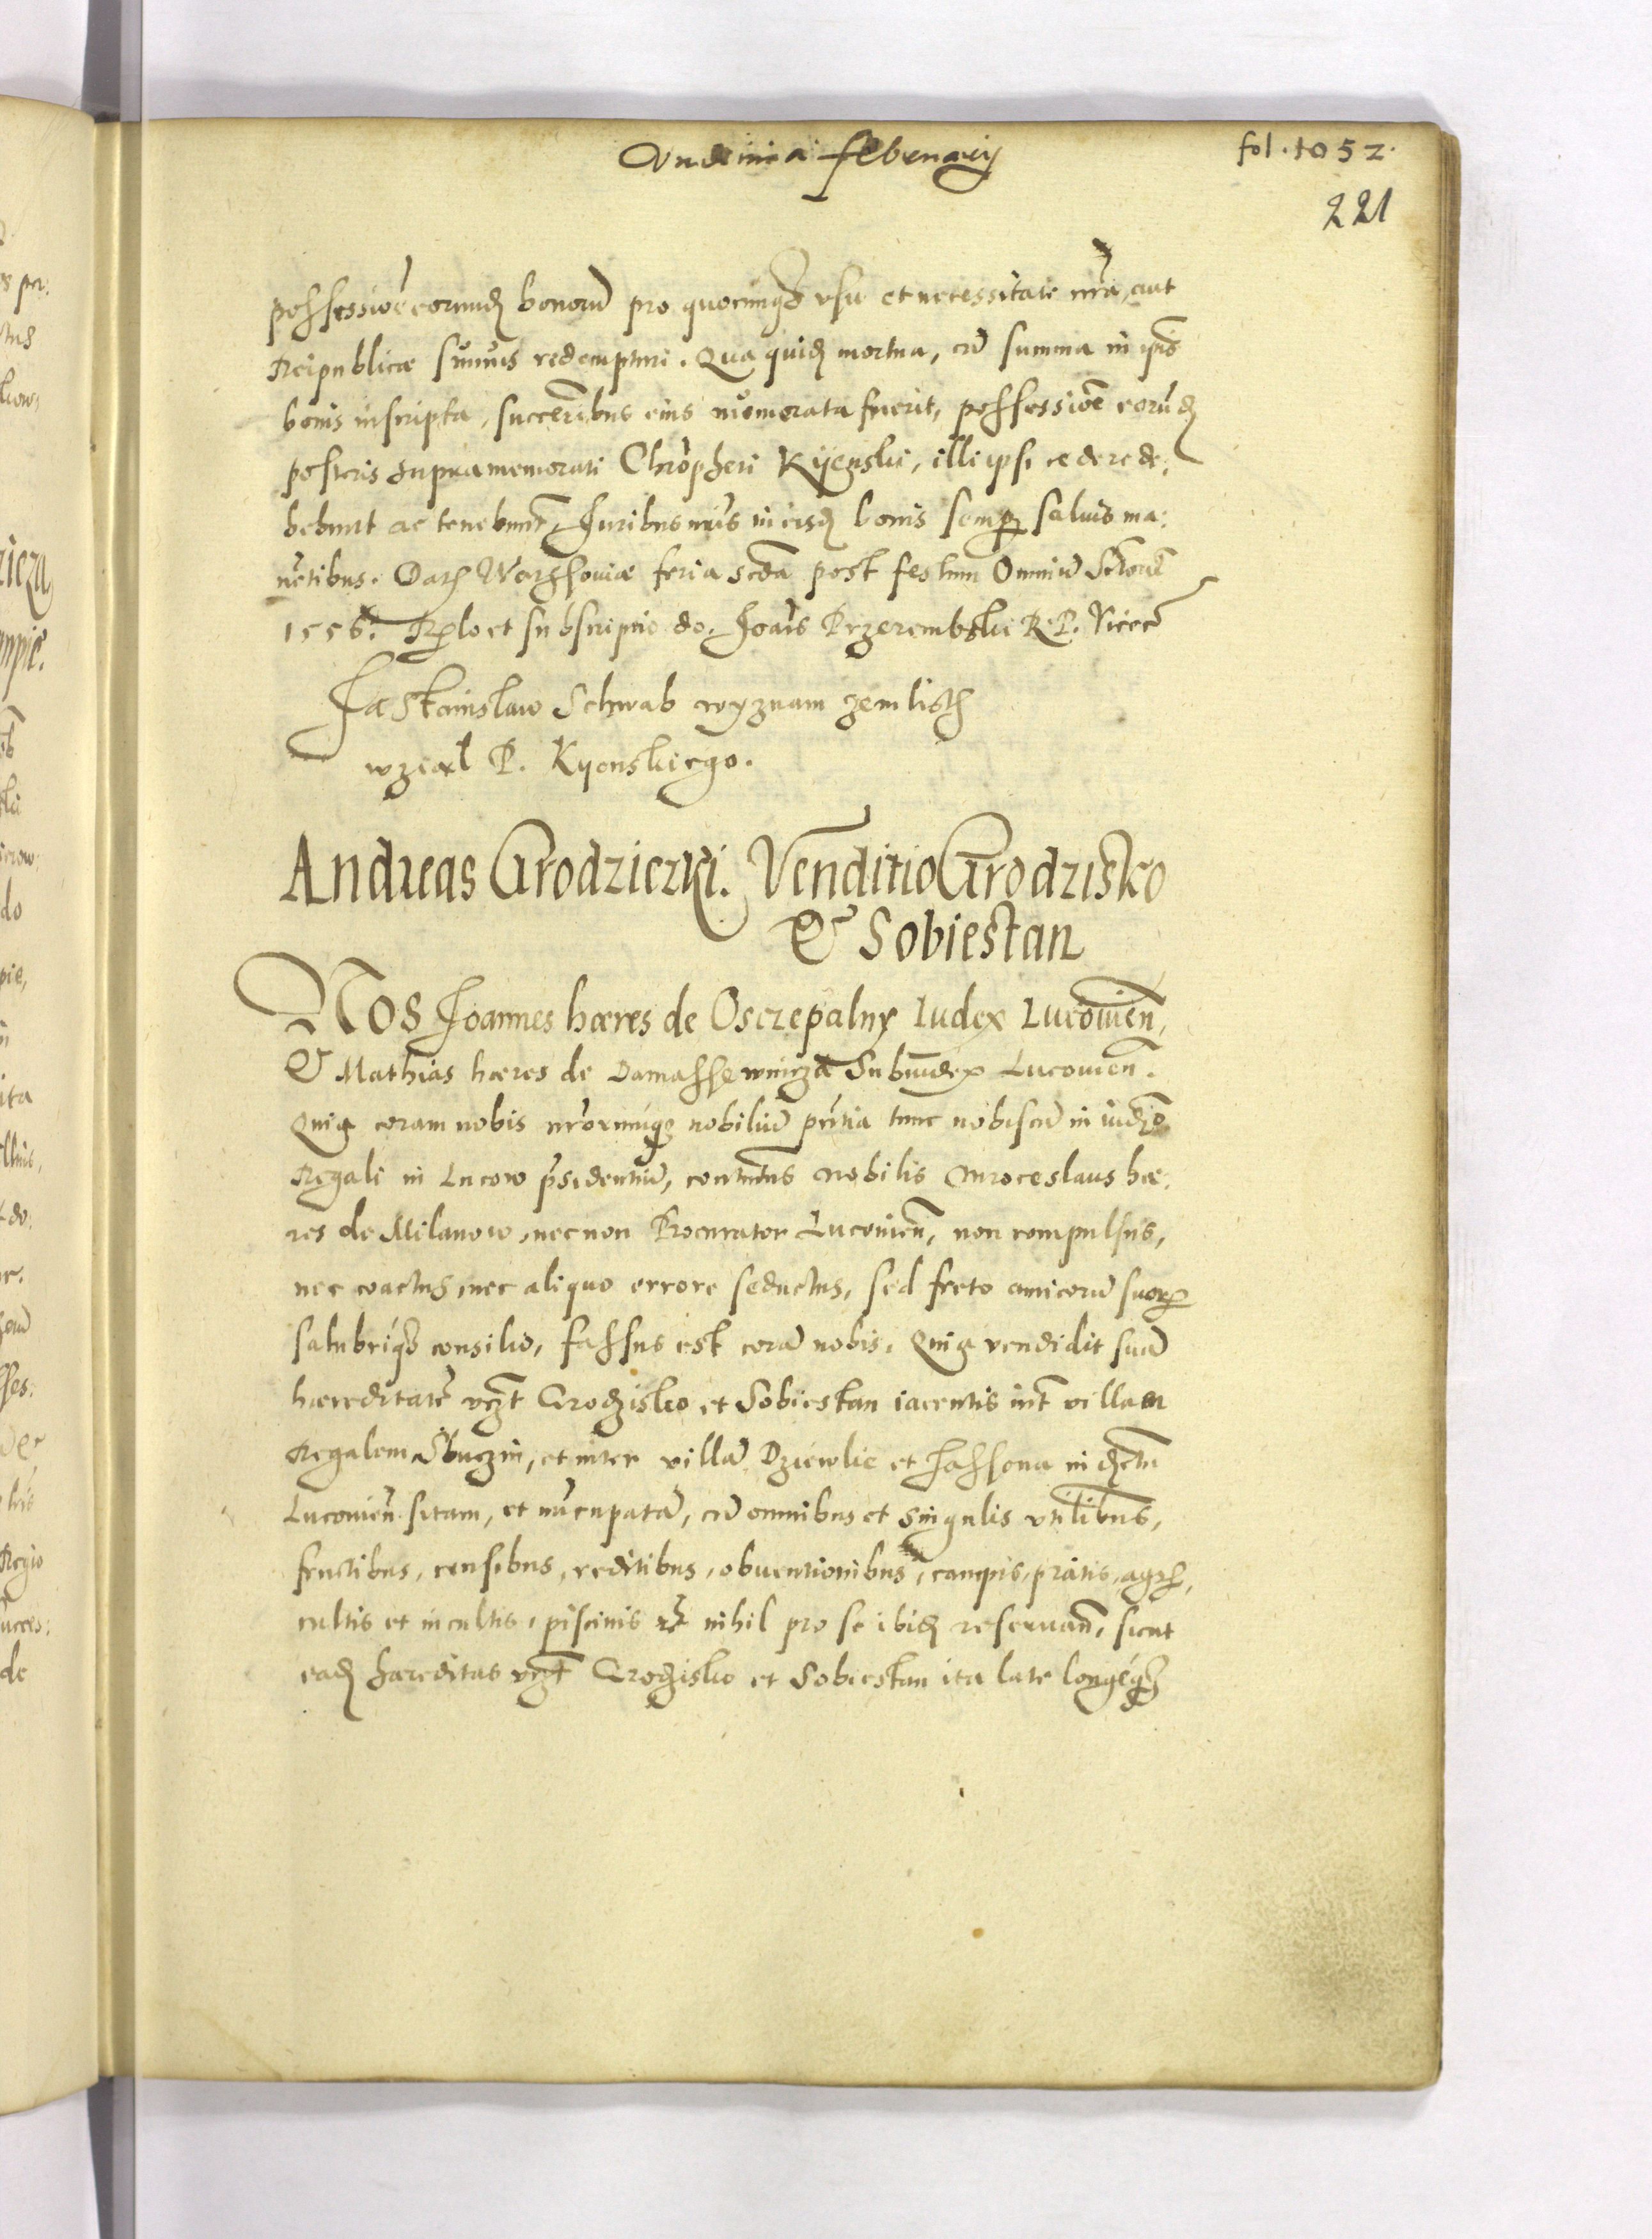 Vndecima february
fol. 1052.
221
possessioē eorundꝫ bonorū pro quocunqꝫ vsu et necessitate nrā, aut
Reipublicæ sumus redempturi. Qua quidꝫ mortua, cū summa in ipīs
bonis inscripta, succēribus eius numerata fuerit, possessionē eorūdꝫ
posteris supramemorati Chrōpheri Kyenski, illi ipsi cedere de:
bebunt ac tenebuntr, Juribus nrīs in eisdꝫ bonis semper saluis ma:
nētibus. Datꝫ Warschouiæ feria scdā post festum Omniū Sctorū
1556. Rlo et subscriptio do. Joānis Przerembski R. P. Vicecā
Ja Stanislaw Schwab wyznam zem listh
wzial P. Kyenskiego.
Andreas Grodziczki. Venditio Grodzisko
& Sobiestan
Nos Joannes hæres de Osczepalny Iudex Lucouien̄,
& Mathias hæres de Damassewnicza Subiudex Lucouien̄.
Quia coram nobis nrōrumqꝫ nobiliū prītia tunc nobiscū in iudicio
Regali in Lucow prēsidentiū, constitutus nobilis Mroceslaus hæ:
res de Milanow, necnon Procurator Lucouien̄, non compulsus,
nec coactus, nec aliquo errore seductus, sed freto amicorū suorum
salubriqꝫ consilio, fassus est corā nobis. Quia vendidit suā
hæreditatē vꝫt Grodzisko et Sobiestan iacentis intr villam
Regalem Sbuczin, et inter villā Dziewlie et Jassona in dꝫctu
Lucouien̄ sitam, et nūcupatā, cū omnibus et singulis vtilibus,
fructibus, censibus, reditibus, obuentionibus, campis, pratis, agris,
cultis et incultis, piscinis &c nihil pro se ibidꝫ reseruan̄, sicut
eadꝫ hæreditas vꝫt Grodzisko et Sobiestan ita late longeqꝫ